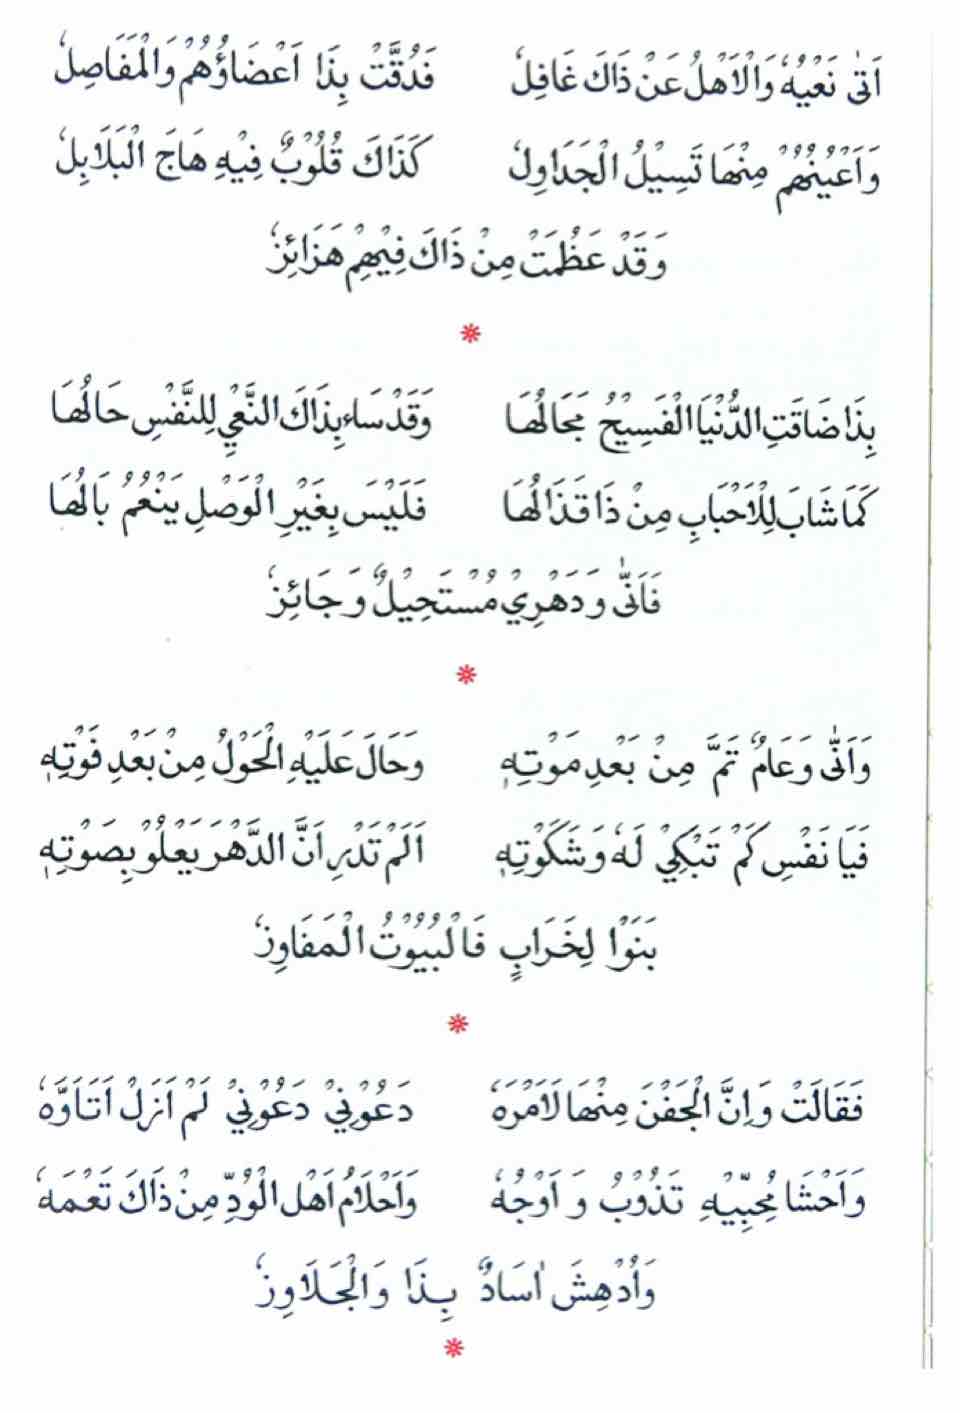 اَتٰى نَعْيُهٗ وَالْاَهْلُ عَنْ ذَاكَ غَافِلٗ فَدُقَّتْ بِذَا اَعْضَاؤُهُمْ وَالْمَفَاصِلٗ
وَاَعْيُنُهُمْ مِنْهَا تَسِيْلُ الْجَدَاوِلٗ كَذَاكَ قُلُوْبٌ فِيْهِ هَاجَ الْبَلَابِلٗ
وَقَدْ عَظُمَتْ مِنْ ذَاكَ فِيْهِمْ هَزَائِزٗ
بِذَا ضَاقَتِ الدُّنْيَا الْفَسِيْحُ مَجَالُهَا وَقَدْ سَاءَ بِذَاكَ النَّعْيِ لِلنَّفْسِ حَالُهَا
كَمَا شَابَ لِلْاَحْبَابِ مِنْ ذَا قَذَالُهَا فَلَيْسَ بِغَيْرِ الْوَصْلِ يَنْعُمُ بَالُهَا
فَاَنّٰى وَدَهْرِيْ مُسْتَحِيْلٌ وَجَائِزٗ
وَاَنّٰى وَعَامٌ تَمَّ مِنْ بَعْدِ مَوْتِهٖ وَحَالَ عَلَيْهِ الْحَوْلُ مِنْ بَعْدِ فَوْتِهٖ
فَيَا نَفْسِ كَمْ تَبْكِيْ لَهٗ وَشَكَوْتِهٖ اَلَمْ تَدْرِ اَنَّ الدَّهْرَ يَعْلُوْ بِصَوْتِهٖ
بَنَوْا لِخَرَابٍ فَالْبُيُوْتُ الْمَفَاوِزٗ
فَقَالَتْ وَاِنَّ الْجَفْنَ مِنْهَا لَاَمْرَهٗ دَعُوْنِيْ دَعُوْنِيْ لَمْ اَزَلْ اَتَاَوَّهٗ
وَاَحْشَا مُحِبِّيْهِ تَذُوْبُ وَاَوْجُهٗ وَاَحْلَامُ اَهْلِ الْوُدِّ مِنْ ذَاكَ تَعْمَهٗ
وَاُدْهِشَ اٰسَادٌ بِذَا وَالْجَلَاوِزٗ